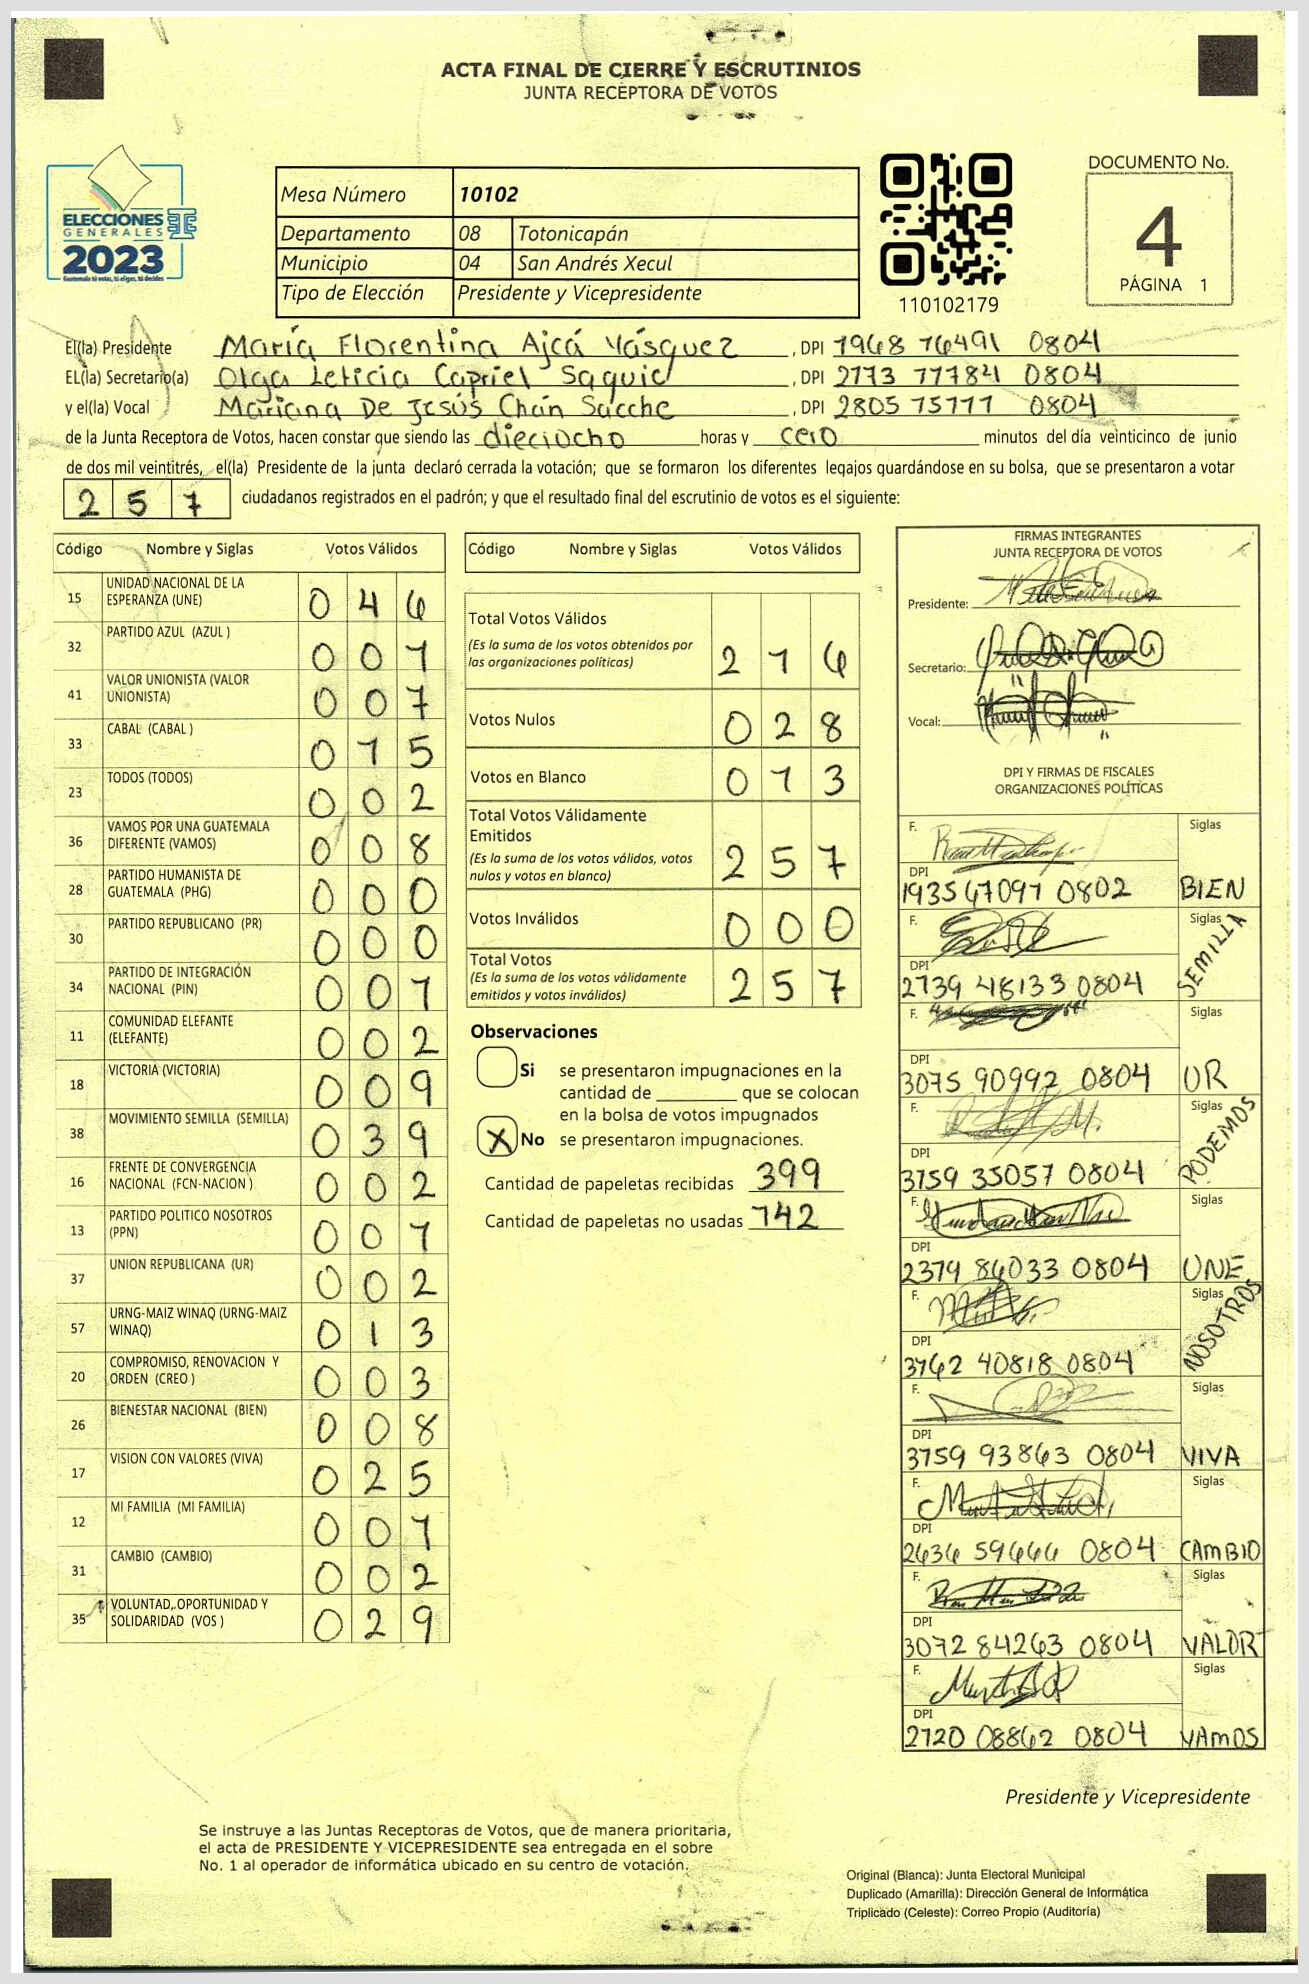 ACTA FINAL DE CIERRE Y ESCRUTINIOS
JUNTA RECEPTORA DE VOTOS
ELECCIONES
GENERALES
2023
Guatemala tú votas, tú eliges, tú decides
Mesa Número 10102
Departamento 08 Totonicapán
Municipio 04 San Andrés Xecul
Tipo de Elección Presidente y Vicepresidente
110102179
DOCUMENTO No.
4
PÁGINA 1
El(la) Presidente María Florentina Ajcá Vásquez , DPI 1968 16491 0804
EL(la) Secretario(a) Olga Leticia Capriel Saquic , DPI 0804
y el(la) Vocal Mariana De Jesús Chán Sacche , DPI 2805 0804
de la Junta Receptora de Votos, hacen constar que siendo las dieciocho horas y cero minutos del día veinticinco de junio
de dos mil veintitrés, el(la) Presidente de la junta declaró cerrada la votación; que se formaron los diferentes legajos guardándose en su bolsa, que se presentaron a votar
257 ciudadanos registrados en el padrón; y que el resultado final del escrutinio de votos es el siguiente:
Código Nombre y Siglas Votos Válidos
15 UNIDAD NACIONAL DE LA ESPERANZA (UNE) 046
32 PARTIDO AZUL (AZUL ) 001
41 VALOR UNIONISTA (VALOR UNIONISTA) 007
33 CABAL (CABAL ) 015
23 TODOS (TODOS) 002
36 VAMOS POR UNA GUATEMALA DIFERENTE (VAMOS) 008
28 PARTIDO HUMANISTA DE GUATEMALA (PHG) 000
30 PARTIDO REPUBLICANO (PR) 000
34 PARTIDO DE INTEGRACIÓN NACIONAL (PIN) 001
11 COMUNIDAD ELEFANTE (ELEFANTE) 002
18 VICTORIA (VICTORIA) 009
38 MOVIMIENTO SEMILLA (SEMILLA) 039
16 FRENTE DE CONVERGENCIA NACIONAL (FCN-NACION ) 002
13 PARTIDO POLITICO NOSOTROS (PPN) 001
37 UNION REPUBLICANA (UR) 002
57 URNG-MAIZ WINAQ (URNG-MAIZ WINAQ) 013
20 COMPROMISO, RENOVACION Y ORDEN (CREO ) 003
26 BIENESTAR NACIONAL (BIEN) 008
17 VISION CON VALORES (VIVA) 025
12 MI FAMILIA (MI FAMILIA) 001
31 CAMBIO (CAMBIO) 002
35 VOLUNTAD, OPORTUNIDAD Y SOLIDARIDAD (VOS ) 029
Código Nombre y Siglas Votos Válidos
Total Votos Válidos 216
(Es la suma de los votos obtenidos por
las organizaciones políticas)
Votos Nulos 028
Votos en Blanco 013
Total Votos Válidamente
Emitidos 257
(Es la suma de los votos válidos, votos
nulos y votos en blanco)
Votos Inválidos 000
Total Votos 257
(Es la suma de los votos válidamente
emitidos y votos inválidos)
Observaciones
Si se presentaron impugnaciones en la
cantidad de ________ que se colocan
en la bolsa de votos impugnados
X No se presentaron impugnaciones.
Cantidad de papeletas recibidas 399
Cantidad de papeletas no usadas 142
FIRMAS INTEGRANTES
JUNTA RECEPTORA DE VOTOS
Presidente:
Secretario:
Vocal:
DPI Y FIRMAS DE FISCALES
ORGANIZACIONES POLÍTICAS
F. Siglas
DPI
1935 67097 0802 BIEN
F. Siglas
DPI
2739 48133 0804 SEMILLA
F. Siglas
DPI
3075 90992 0804 UR
F. Siglas
DPI
3159 35057 0804 PODEMOS
F. Siglas
DPI
2379 86033 0804 UNE
F. Siglas
DPI
3162 40818 0804 NOSOTROS
F. Siglas
DPI
3159 93863 0804 VIVA
F. Siglas
DPI
2636 59666 0804 CAMBIO
F. Siglas
DPI
3072 84263 0804 VALOR
F. Siglas
DPI
2120 08862 0804 VAMOS
Presidente y Vicepresidente
Se instruye a las Juntas Receptoras de Votos, que de manera prioritaria,
el acta de PRESIDENTE Y VICEPRESIDENTE sea entregada en el sobre
No. 1 al operador de informática ubicado en su centro de votación.
Original (Blanca): Junta Electoral Municipal
Duplicado (Amarilla): Dirección General de Informática
Triplicado (Celeste): Correo Propio (Auditoría)